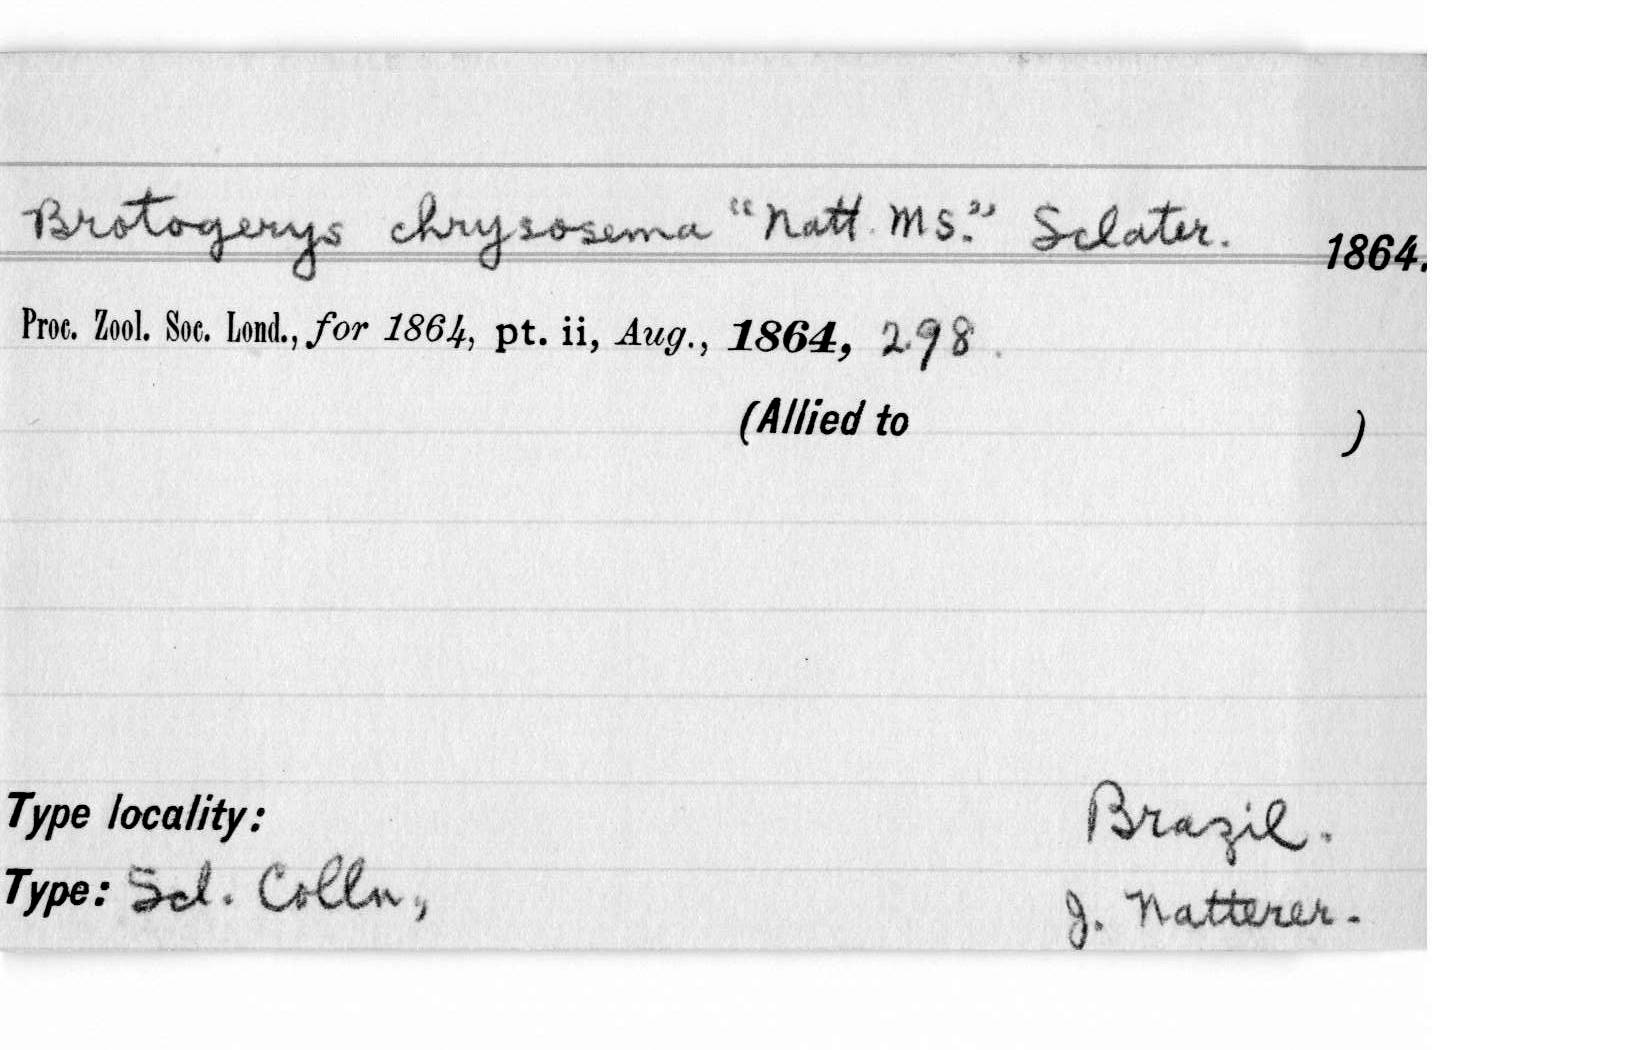 Brotogerys chrysosema "Natt. MS." Sclater. 1864.
Proc. Zool. Soc. Lond., for 1864, pt. ii, Aug., 1864, 298.
(Allied to )
Type locality: Brazil.
Type: Scl. Colln, J. Natterer.